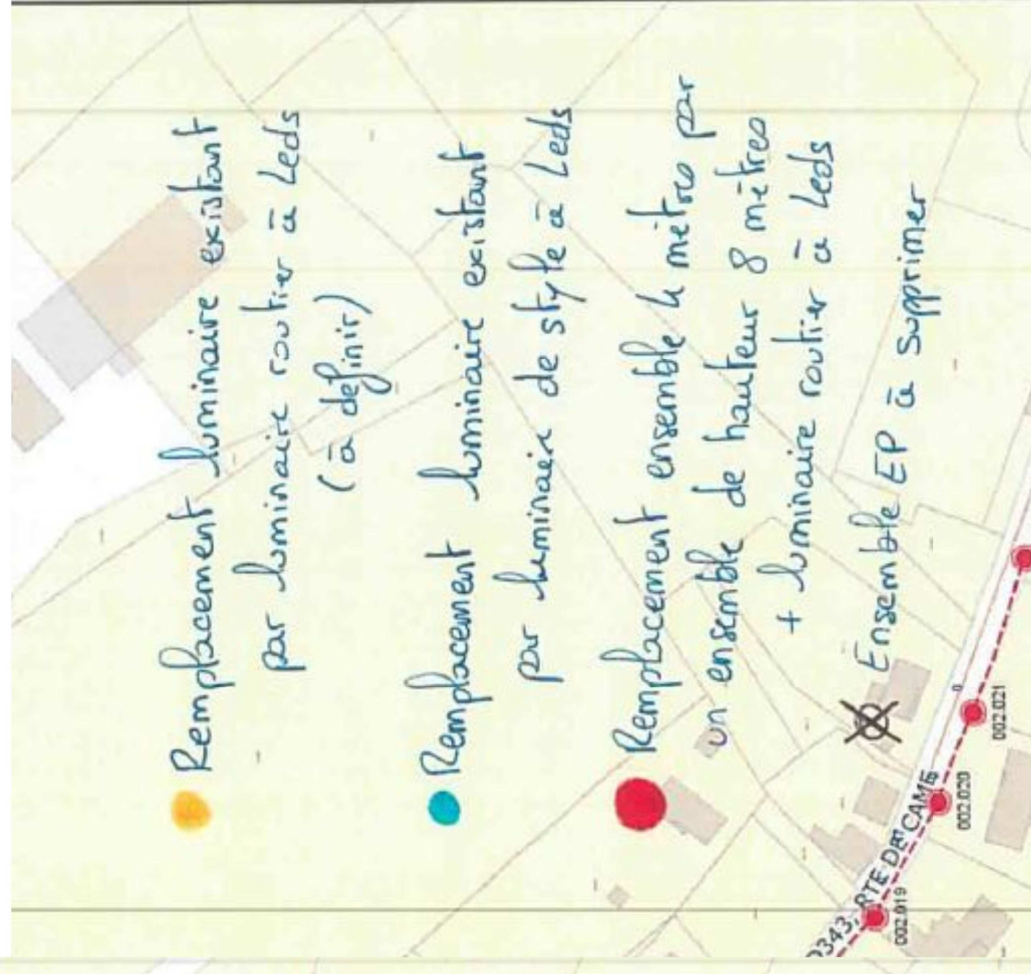 Remplacement luminaire existant
par luminaire routier à Leds
(à définir)
Remplacement luminaire existant
par luminaire de style à Leds
Remplacement ensemble 4 mètres par
un ensemble de hauteur 8 mètres
+ luminaire routier à Leds
Ensemble EP à supprimer
D343, RTE DE CAME
002.019
002.020
002.021